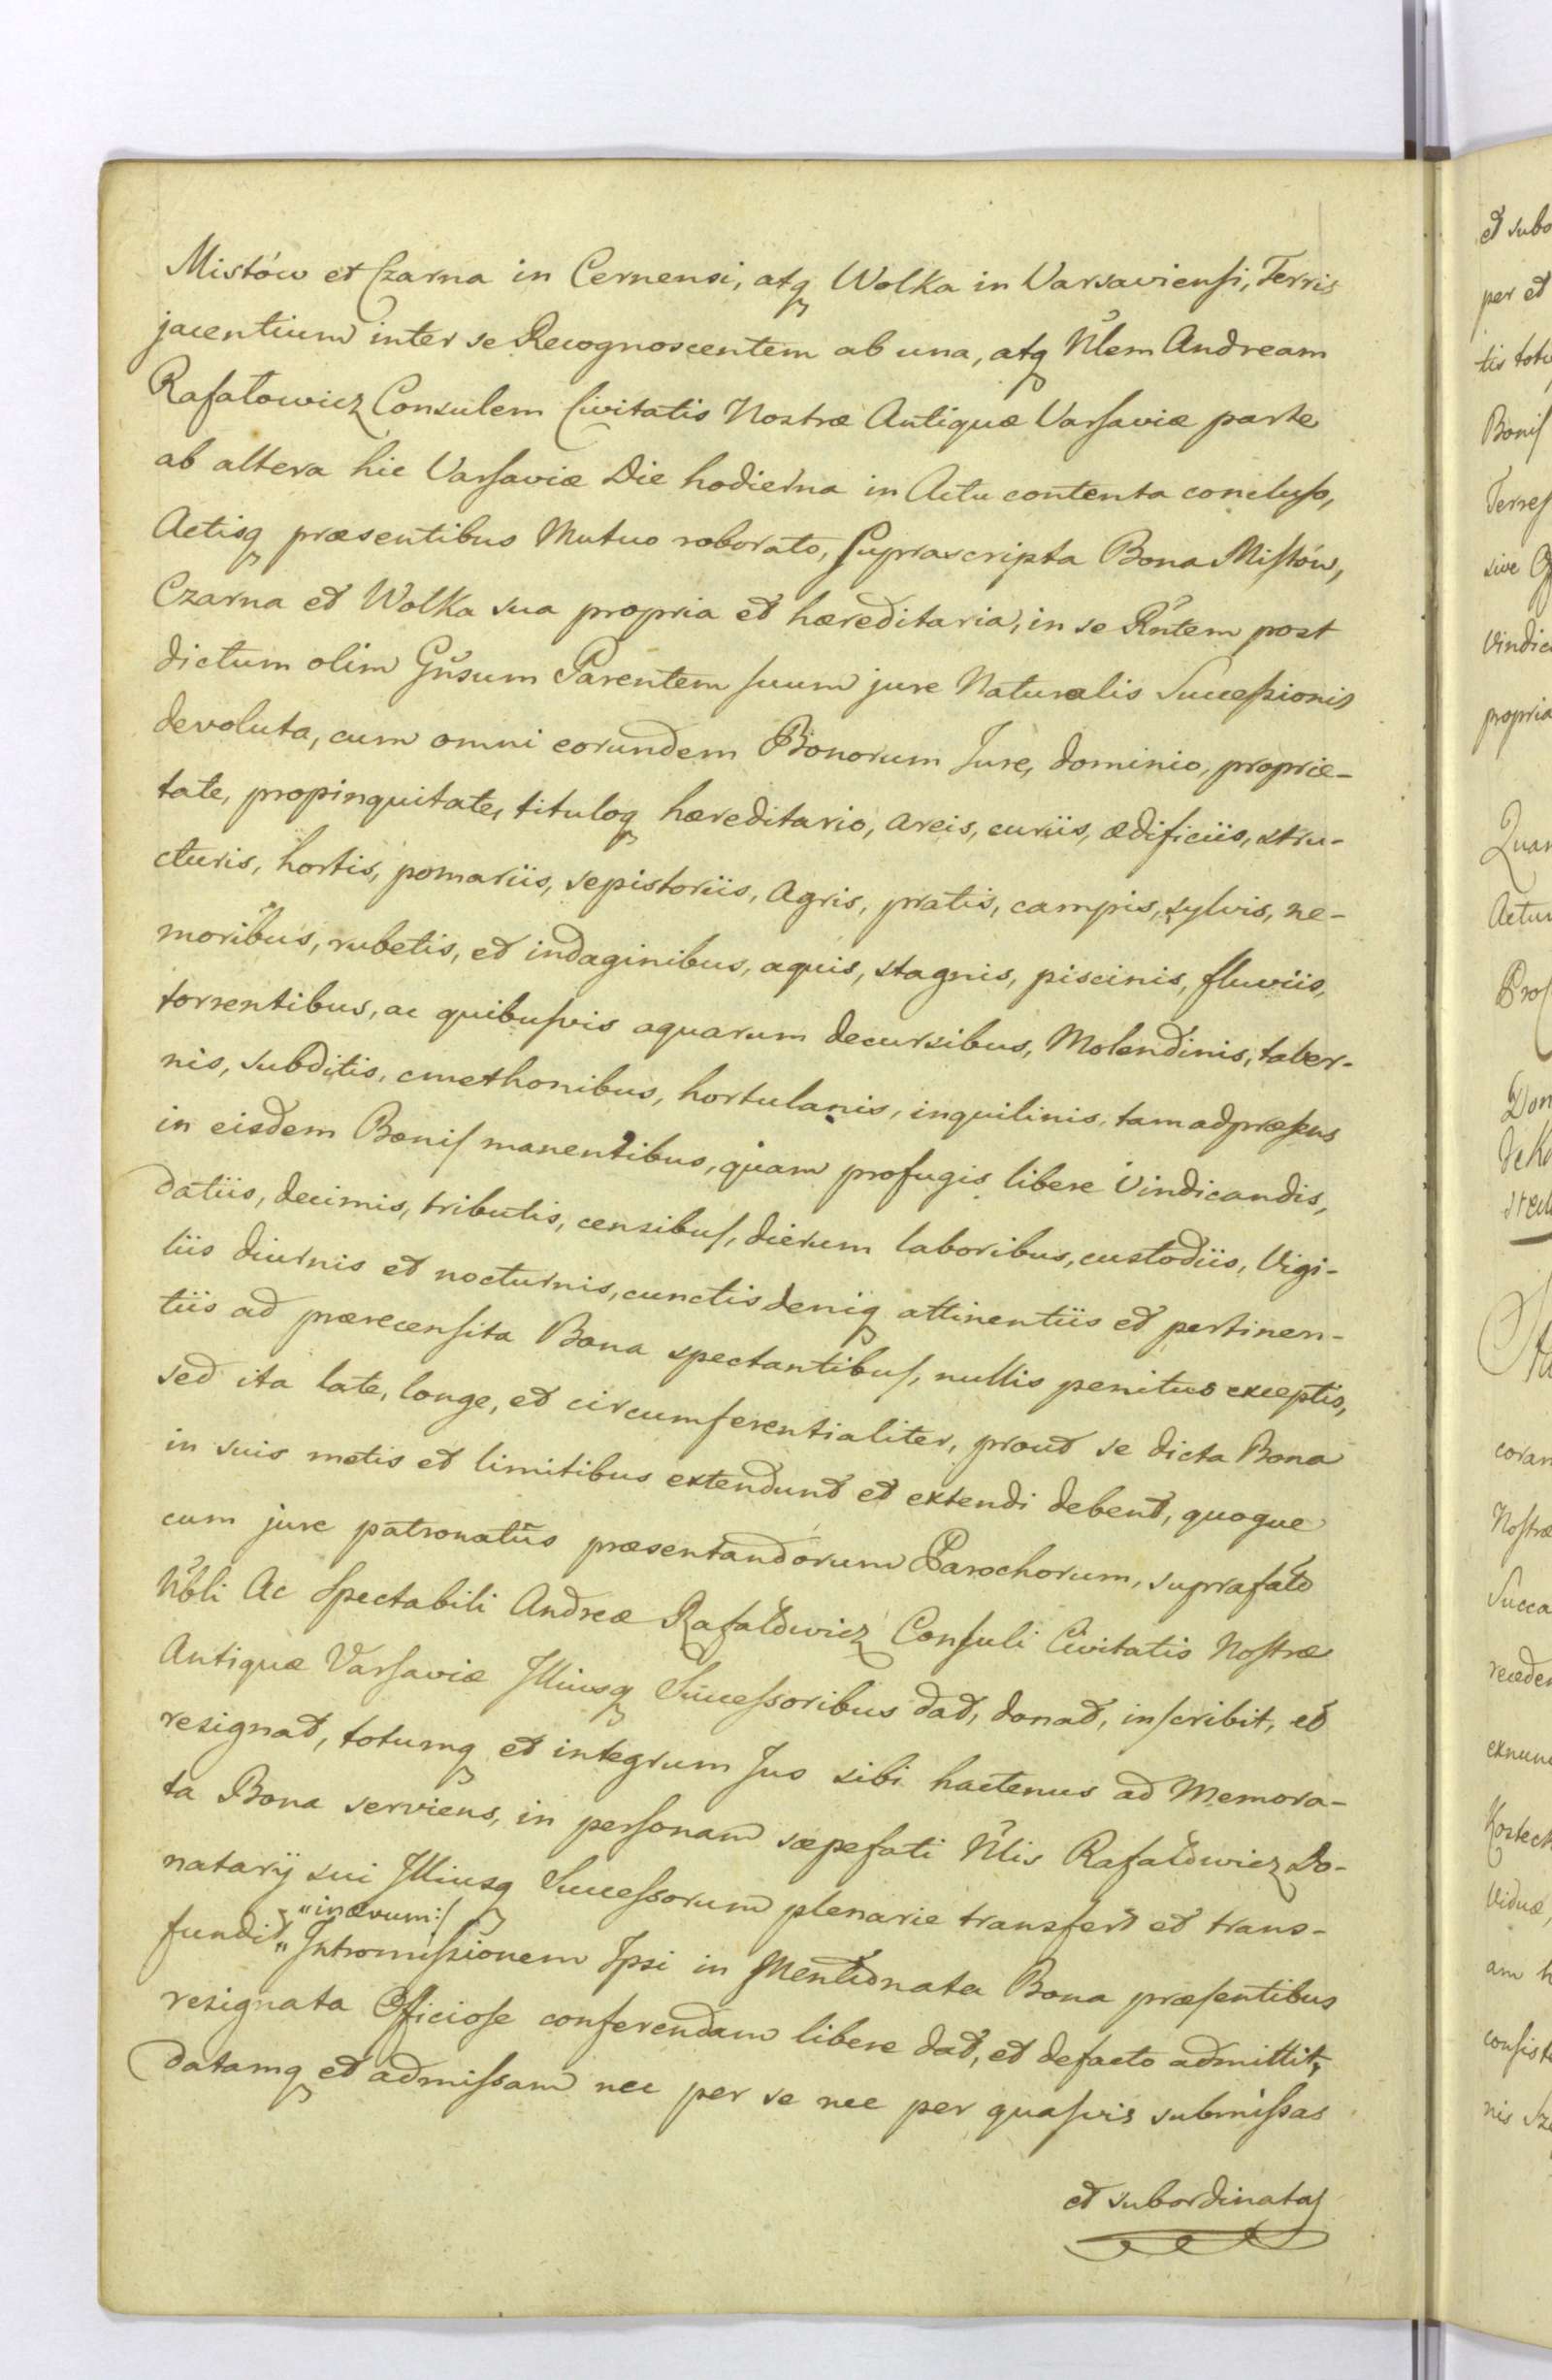 Mistów et Czarna in Cernensi, atq Wolka in Varsaviensi, Terris
jacentium inter se Recognoscentem ab una, atq Nlem Andream
Rafałowicz Consulem Civitatis Nostræ Antiquæ Varsaviæ parte
ab altera hic Varsaviæ Die hodierna in Actu contenta concluso,
Actisq præsentibus Mutuo roborato, Suprascripta Bona Mistów,
Czarna et Wolka sua propria et hæreditaria, in se Rntem post
dictum olim Gnsum Parentem suum jure Naturalis Successionis
devoluta, cum omni eorundem Bonorum Jure, dominio, proprie-
tate, propinquitate, tituloq hæreditario, areis, curiis, ædificiis, stru-
cturis, hortis, pomariis, sepistoriis, Agris, pratis, campis, sylvis, ne-
moribus, rubetis, et indaginibus, aquis, stagnis, piscinis, fluviis,
torrentibus, ac quibusvis aquarum decursibus, Molendinis, taber-
nis, subditis, cmethonibus, hortulanis, inquilinis, tam adpræsens
in eisdem Bonis manentibus, quam profugis libere Vindicandis,
datiis, decimis, tributis, censibus, dierum laboribus, custodiis, Vigi-
liis diurnis et nocturnis, cunctis deniq attinentiis et pertinen-
tiis ad præcensita Bona spectantibus, nullis penitus exceptis,
sed ita late, longe, et circumferentialiter, prout se dicta Bona
in suis metis et limitibus extendunt et extendi debent, quoque
cum jure patronatûs præsentandorum Parochorum, suprafato
Nbli Ac Spectabili Andreæ Rafałowicz Consuli Civitatis Nostræ
Antiquæ Varsaviæ Illiusq Successoribus dat, donat, inscribit, et
resignat, totumq et integrum Jus sibi hactenus ad Memora-
ta Bona serviens, in personam sæpefati Nlis Rafałowicz Do-
natarij sui Illiusq Successorum plenarie transfert et trans-
"inævum:/
fundit" Intromissionem Ipsi in Mentionata Bona præsentibus
resignata Officiose conferendam libere dat, et defacto admittit,
datamq et admissam nec per se nec per quasvis submissas
et subordinatas
et subo
per et
tis totu
Bonis
Terres
sive
Vindic
propria
Quam
Actu
Pros
Don
de Ko
coram
Nostræ
Succa
receden
exnunc
Kosteck
Viduæ,
am h
consist
nis Sz